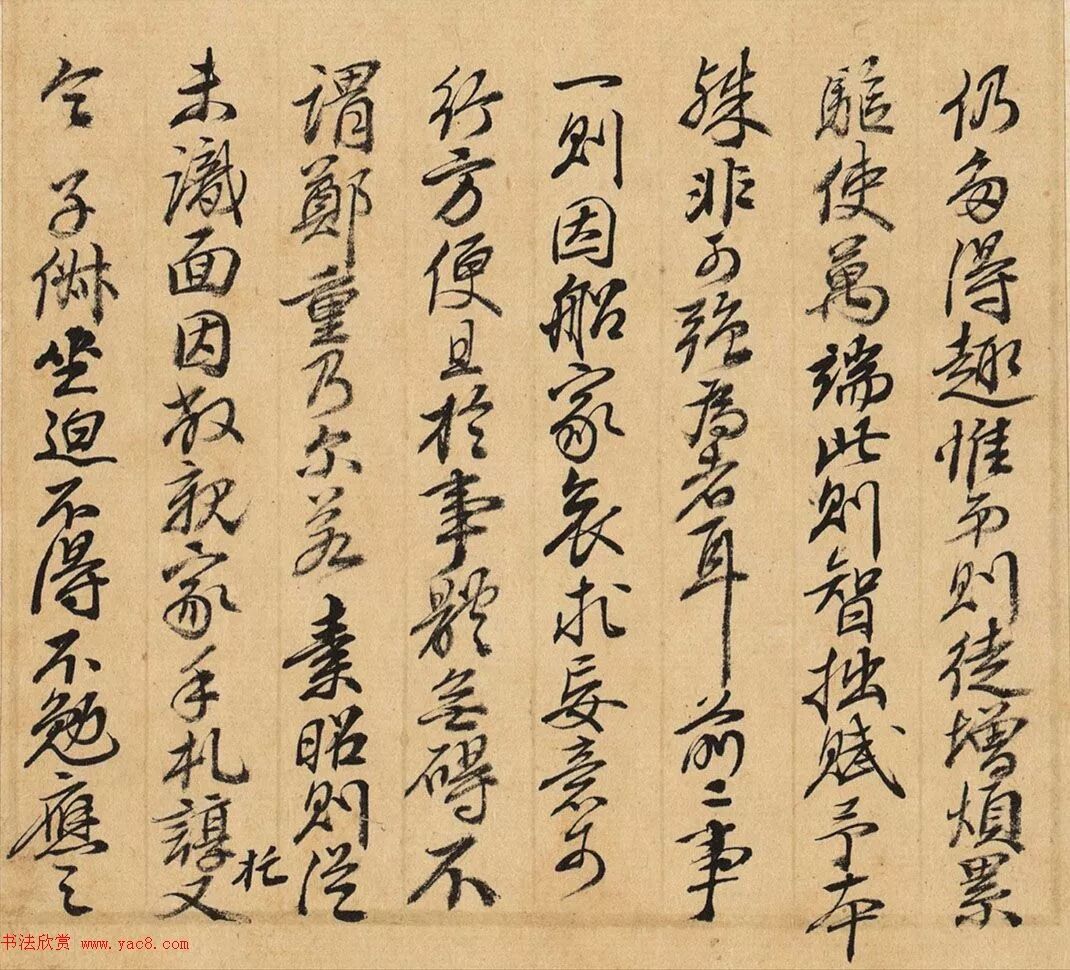 仍多得趣惟弟則徒增煩累
驅使萬端此則智拙賦予本
殊非可強為者耳前二事
一則因船家哀求妄意可
行方便且於事體無碍不
謂鄭重乃尔若素昭則從
未識面因敝親家手札諄又托
令子姻坐迫不得不勉應之
书法欣赏 www.yac8.com